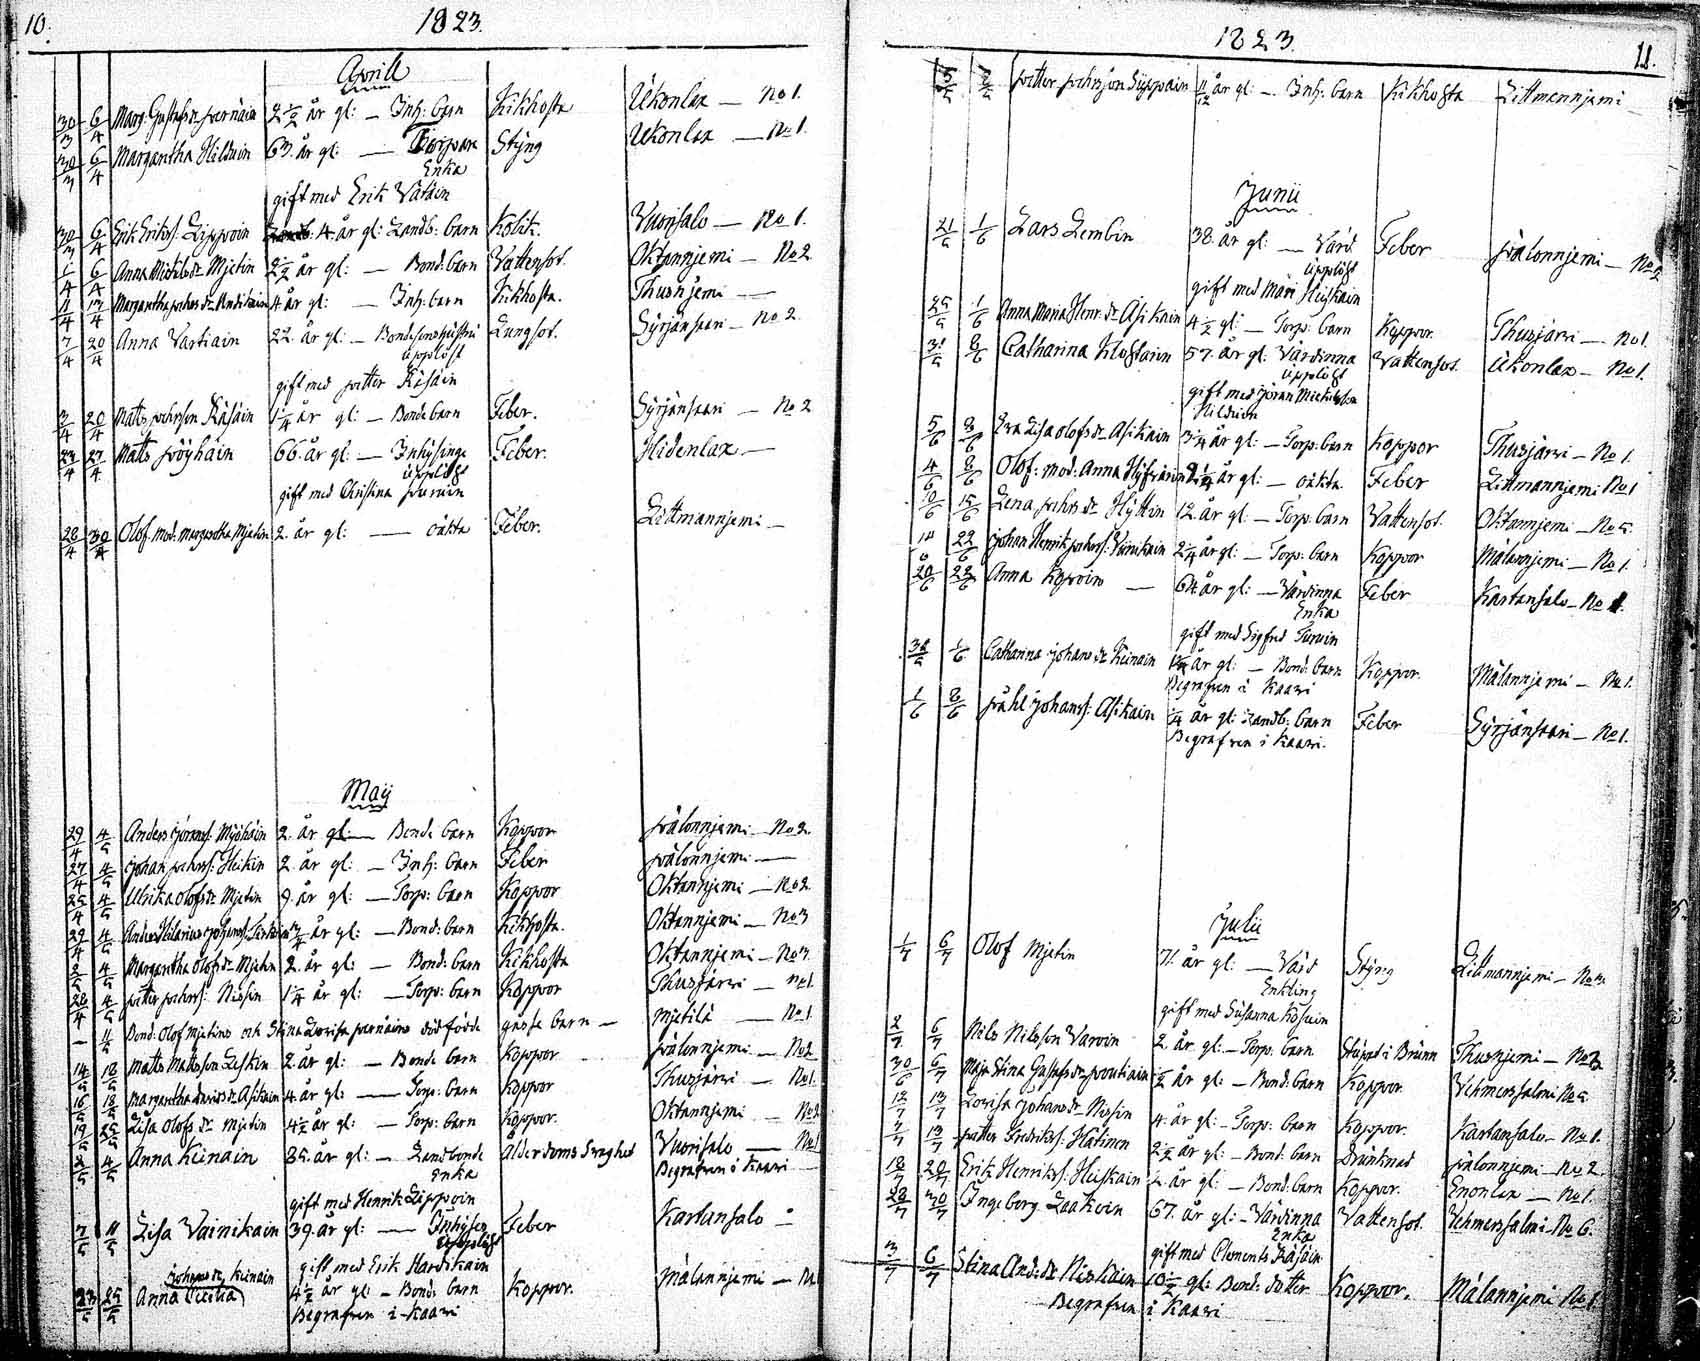 10.
1823.
Aprill
30/3 6/4 Marg: Gustafs dr Parnain 2 1/2 år gl: — Inh: barn Kikhosta Ukonlax — No 1.
30/3 6/4 Margaretha Hilduin 63. år gl: — Torpare Styng Ukonlax — No 1.
Enka
gift med Erik Vätäin
30/3 6/4 Erik Erikss: Lippoin 4. år gl: Landb: barn Kolik. Vuorisalo — No 1.
1/4 6/4 Anna Michels dr Mjetin 2 1/2 år gl: — Bond: barn Vattensot. Oktannjemi — No 2
11/4 13/4 Margaretha Pehrs dr 4 år gl: — Inh: barn Kikhosta. Thusnjemi —
7/4 20/4 Anna Vartiain 22. år gl: — Bondesonshustru Lungsot. Syrjänsaari — No 2.
upplöst
gift med Petter Räsäin
3/4 20/4 Matts Pehrsson Räsäin 1 1/4 år gl: — Bonde barn Feber. Syrjänsaari — No 2
24/4 27/4 Matts Pöyhäin 66. år gl: — Inhysinge Feber. Hidenlax —
upplöst
gift med Christina
28/4 30/4 Olof. mod: Margaretha Mjetin 2. år gl: — oäkta Feber. Littmannjemi —
Maij
29/4 4/5 Anders Jöranss: Myöhäin 2. år gl: — Bonde barn Koppor Pålonnjemi — No 2.
27/4 4/5 Johan Pehrss: Heikin 2. år gl: — Inh: barn Feber Pålonnjemi —
25/4 4/5 Ulrika Olofs dr Mjetin 9. år gl: — Torp: barn Koppor Oktannjemi — No 2.
29/4 4/5 Anders Hilarius Johanss: 3/4 år gl: — Bond: barn Kikhosta. Oktannjemi — No 3
2/5 4/5 Margaretha Olofs dr Mjetin 2. år gl: — Bond: barn Kikhosta Oktannjemi — No 3.
28/4 4/5 Petter Pehrss: Nissin 1 1/4 år gl: — Torp: barn Koppor Thusjärvi — No 1.
— 11/5 Bond: Olof Mjetins och Stina Lovisa Parnains dödfödde gosse barn — Mjetilä — No 1.
14/5 18/5 Matts Mattsson Leskin 2. år gl: — Bonde barn Koppor Pålonnjemi — No 2
16/5 18/5 Margaretha Davids dr Asikain 4. år gl: — Torp: barn Koppor Thusjärvi — No 1.
19/5 25/5 Lisa Olofs dr Mjetin 4 1/2 år gl: — Torp: barn Koppor. Oktannjemi — No 2
2/5 4/5 Anna Keinain 85. år gl: — Landbonde Ålderdoms Svaghet Vuorisalo — No 1
Enka Begrafven i Kaavi
gift med Henrik Lippoin
7/5 11/5 Lisa Vainikain 39. år gl: — Inhyses Feber Kartansalo —
upplöst
gift med Erik Hardikain
Johans dr Keinain
23/5 25/5 Anna Cecilia 4 1/2 år gl: — Bond: barn Koppor. Målannjemi — No
Begrafven i Kaavi
1823.
11.
Petter Pehrsson Lippoin 11/12 år gl: — Inh: barn Kikhosta Littmannjemi
Junii
21/5 1/6 Lars Lembin 38. år gl: — Värd Feber Pålonnjemi — No 2
upplöst
gift med Mari Heiskain
25/5 1/6 Anna Maria Henr: dr Asikain 4 1/2 gl: — Torp: barn Koppor. Thusjärvi — No 1.
31/5 8/6 Catharina Klostain 57. år gl: Värdinna Vattensot. Ukonlax — No 1.
upplöst
gift med Jöran Michelsson
Hilduin
5/6 8/6 Eva Lisa Olofs dr Asikain 3 1/4 år gl: — Torp: barn Koppor Thusjärvi — No 1.
4/6 8/6 Olof: mod: Anna år gl: — oäkta Feber Littmannjemi No 1
10/6 15/6 Lena Pehrs dr Hyttin 12. år gl: — Torp: barn Vattensot. Oktannjemi — No 5.
22/6 Johan Henrik Pehrss: Vänikain 2 1/4 år gl: — Torp: barn Koppor Målannjemi — No 1.
20/6 22/6 Anna Koroin — 64. år gl: — Värdinna Feber Kartansalo — No 1.
Enka
gift med Sigfred Turuin
1/6 Catharina Johans dr Keinain år gl: — Bond: barn Koppor. Målannjemi — No 1.
Begrafven i Kaavi
1/6 8/6 Påhl Johanss: Asikain 1/4 år gl: Landb: barn Feber Syrjänsaari — No 1.
Begrafven i Kaavi.
Julii
1/7 6/7 Olof Mjetin 71. år gl: — Värd Styng Littmannjemi — No 3.
Enkling
gift med Susanna Kosuin
2/7 6/7 Nils Nilsson Varoin 2. år gl: — Torp: barn Stupat i Brunn Thusnjemi — No 3
30/6 6/7 Maja Stina Gustafs dr Poutiain 1/2 år gl: — Bond: barn Koppor. Vehmersalmi No 5.
12/7 13/7 Lovisa Johans dr Nissin 4. år gl: — Torp: barn Koppor. Kartansalo — No 1.
7/7 13/7 Petter Fredrikss: Hätinen 2 1/2 år gl: — Bond: barn Drunknad Pålonnjemi — No 2
18/7 20/7 Erik Henrikss: Heiskain år gl: — Bond: barn Koppor. Enonlax — No 1.
28/7 30/7 Ingeborg Laakoin 67. år gl: — Värdinna Vattensot. Vehmersalmi — No 6.
Enka
gift med Clements Räsäin.
3/7 6/7 Stina And: dr Niskain 10 1/2 gl: Bond: dotter Koppor. Målannjemi No 1
Begrafven i Kaavi